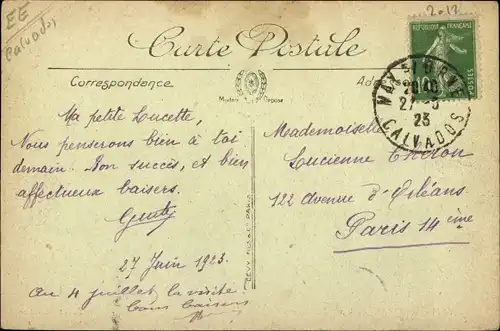 EE
Calvados
2-12
Carte Postale
RÉPUBLIQUE FRANÇAISE
POSTES
10
MAY-S-ORNE
27-6
23
CALVADOS
Correspondance
Ma petite Lucette,
Nous penserons bien à toi
demain. Bon succès, et bien
affectueux baisers.
27 Juin 1923.
Au 4 juillet la visite
bons baisers
Mademoiselle
Lucienne
122 Avenue d'Orléans
Paris 14ème
PARIS